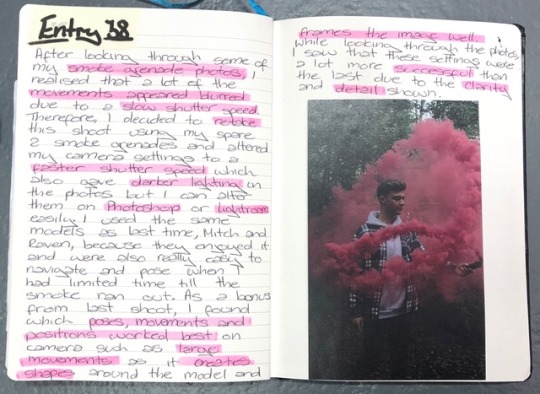 Entry 38
After looking through some of
my smoke grenade photos, I
realised that a lot of the
movements appeared blurred
due to a slow shutter speed.
Therefore, I decided to retake
this shoot using my spare
2 smoke grenades and altered
my camera settings to a
faster shutter speed which
also gave darker lighting in
the photos but I can alter
them on Photoshop or Lightroom
easily. I used the same
models as last time, Mitch and
Raven, because they enjoyed it
and were also really easy to
navigate and pose when I
had limited time till the
smoke ran out. As a bonus
from last shoot, I found
which poses, movements and
positions worked best on
camera such as large
movements as it creates
shapes around the model and
frames the image well.
While looking through the photos,
I saw that these settings were
a lot more successful than
the last due to the clarity
and detail shown.